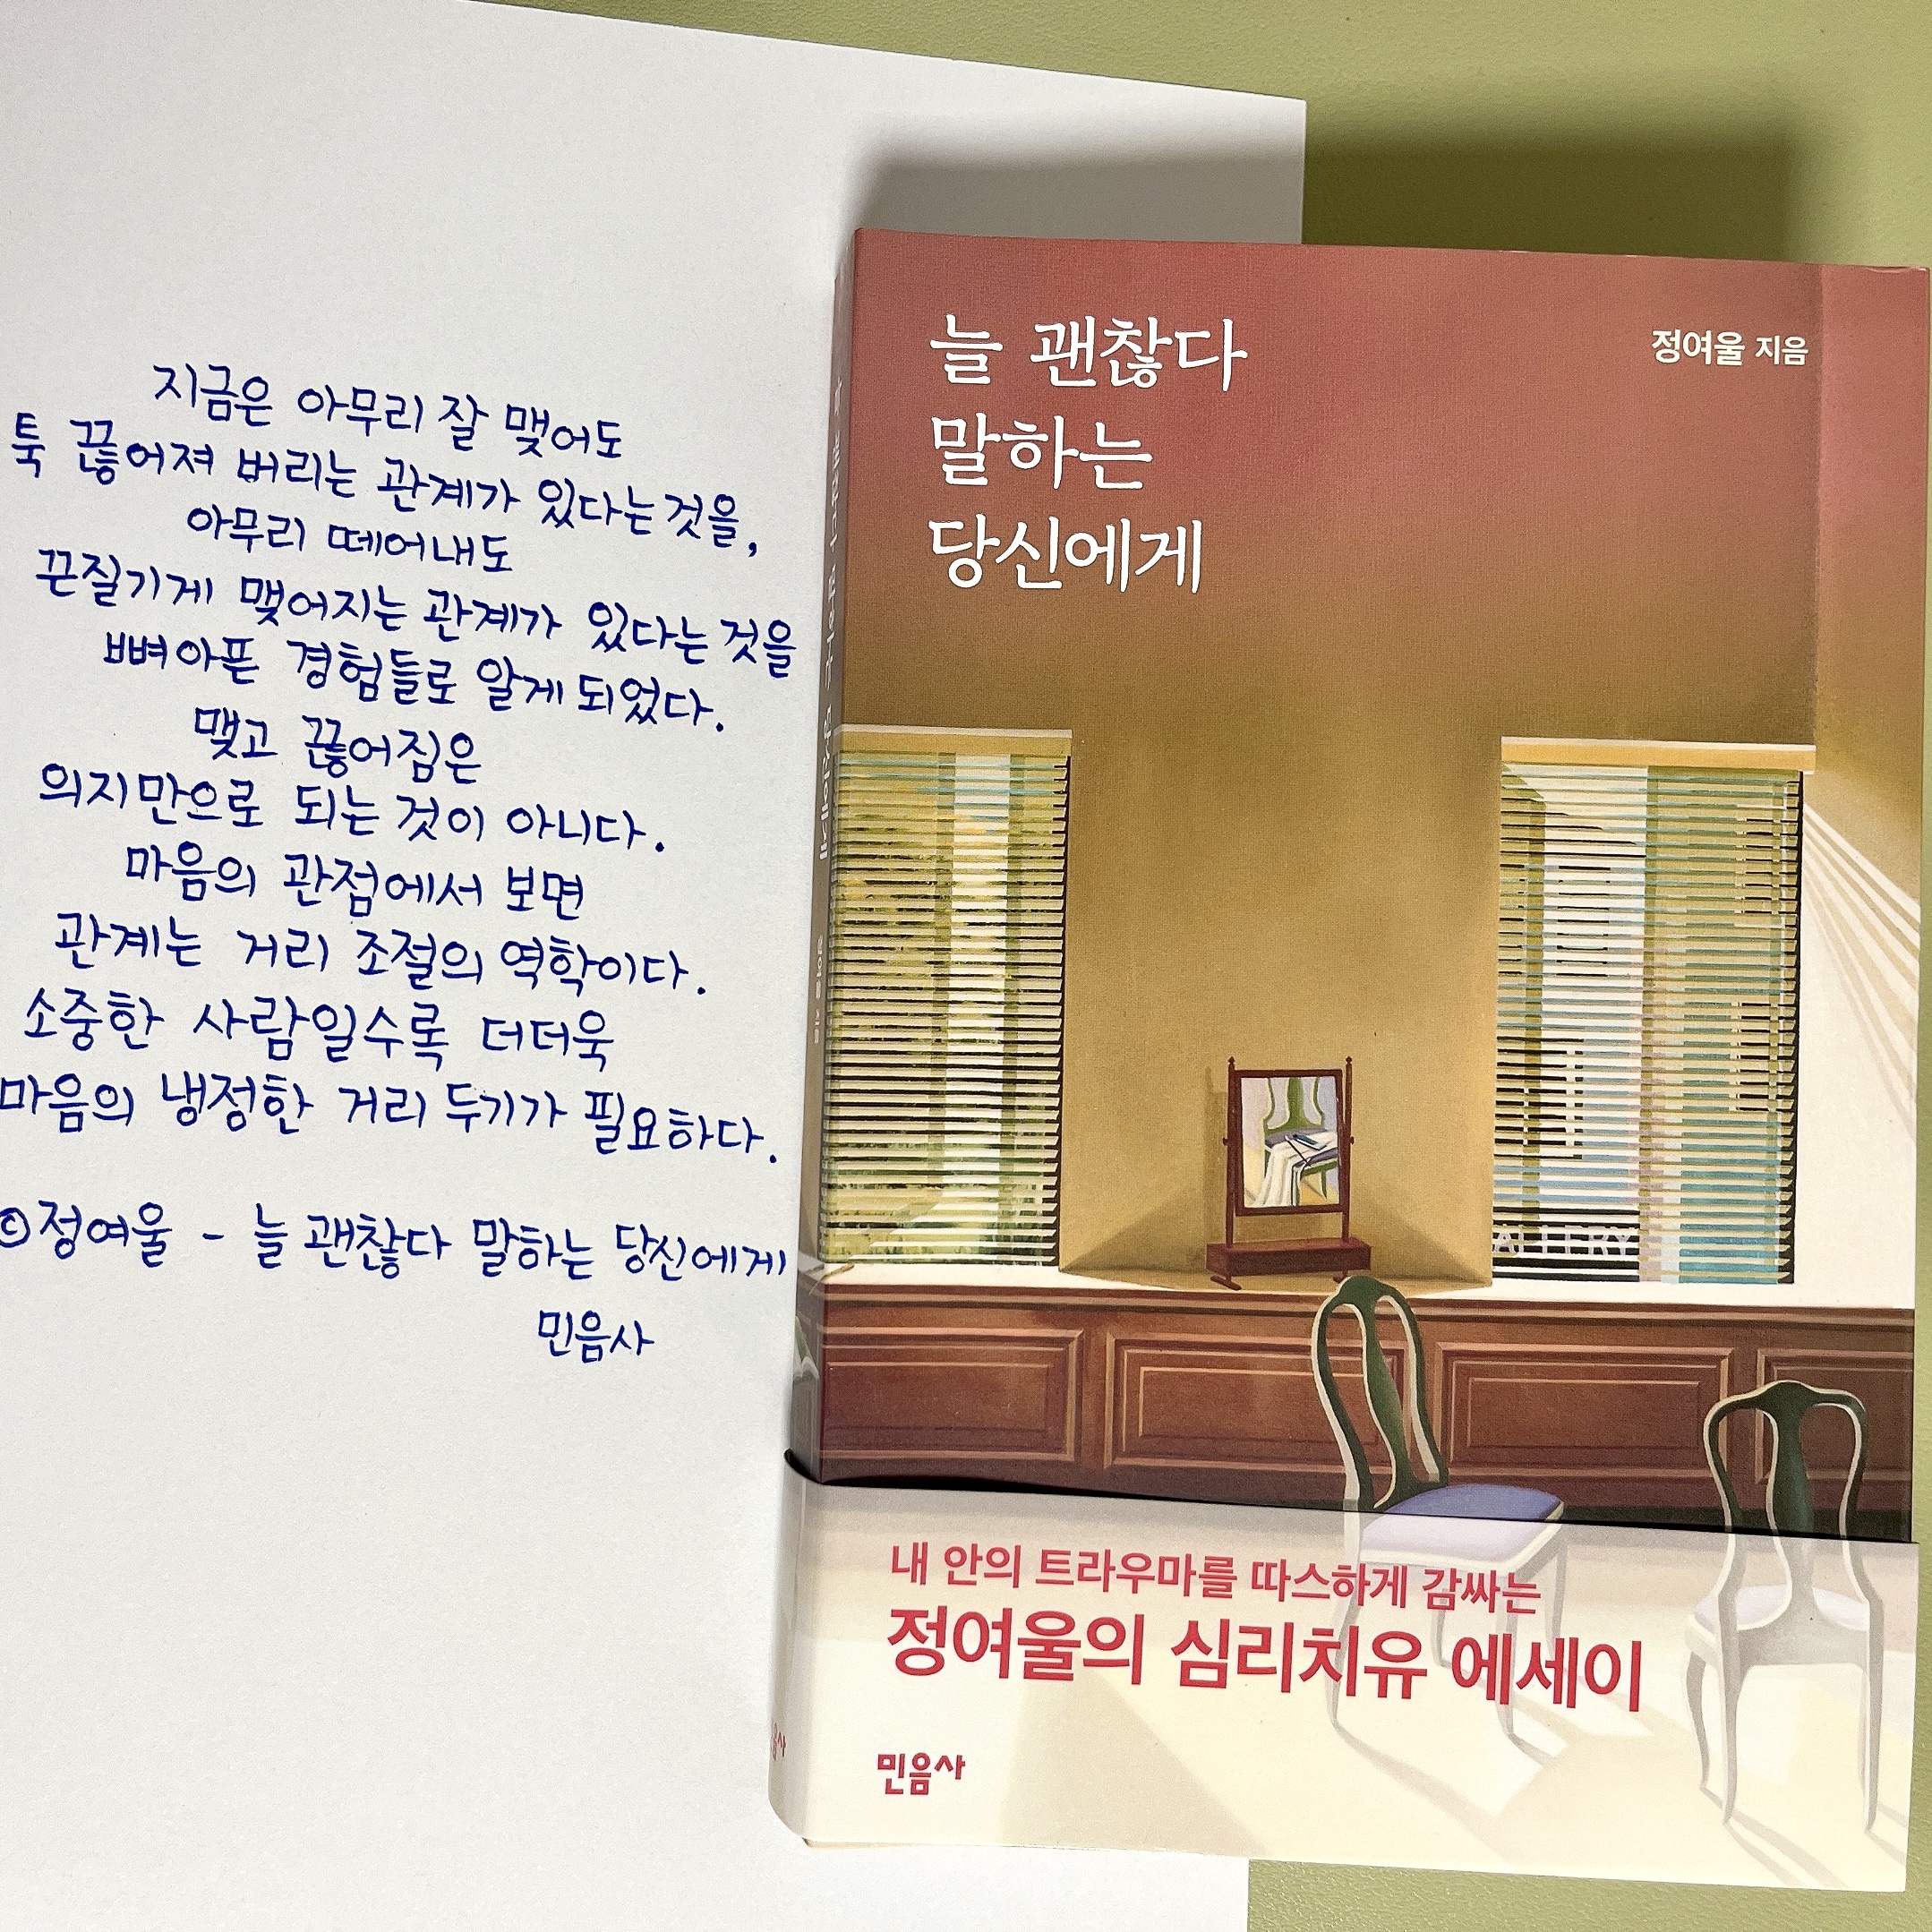 지금은 아무리 잘 맺어도
툭 끊어져 버리는 관계가 있다는 것을,
아무리 떼어내도
끈질기게 맺어지는 관계가 있다는 것을
뼈아픈 경험들로 알게 되었다.
맺고 끊어짐은
의지만으로 되는 것이 아니다.
마음의 관점에서 보면
관계는 거리 조절의 역학이다.
소중한 사람일수록 더더욱
마음의 냉정한 거리 두기가 필요하다.
©정여울 - 늘 괜찮다 말하는 당신에게
민음사
늘 괜찮다
말하는
당신에게
정여울 지음
내 안의 트라우마를 따스하게 감싸는
정여울의 심리치유 에세이
민음사